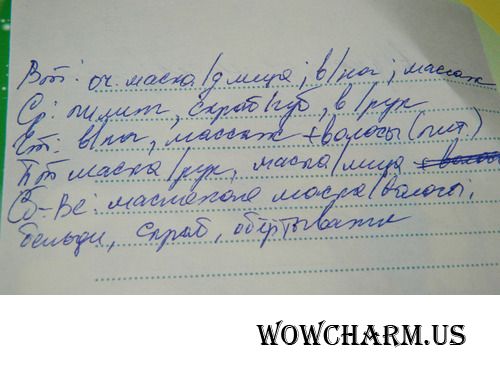 Вт: оч. маска/д лица; в/ног; массаж
Ср: пилинг, скраб/губ, в/рук
Чт: в/ног, массаж + волосы (пит.)
Пт маска/рук, маска/лица
Сб-Вс: маска волосы,
скраб, обёртывание
WOWCHARM.US